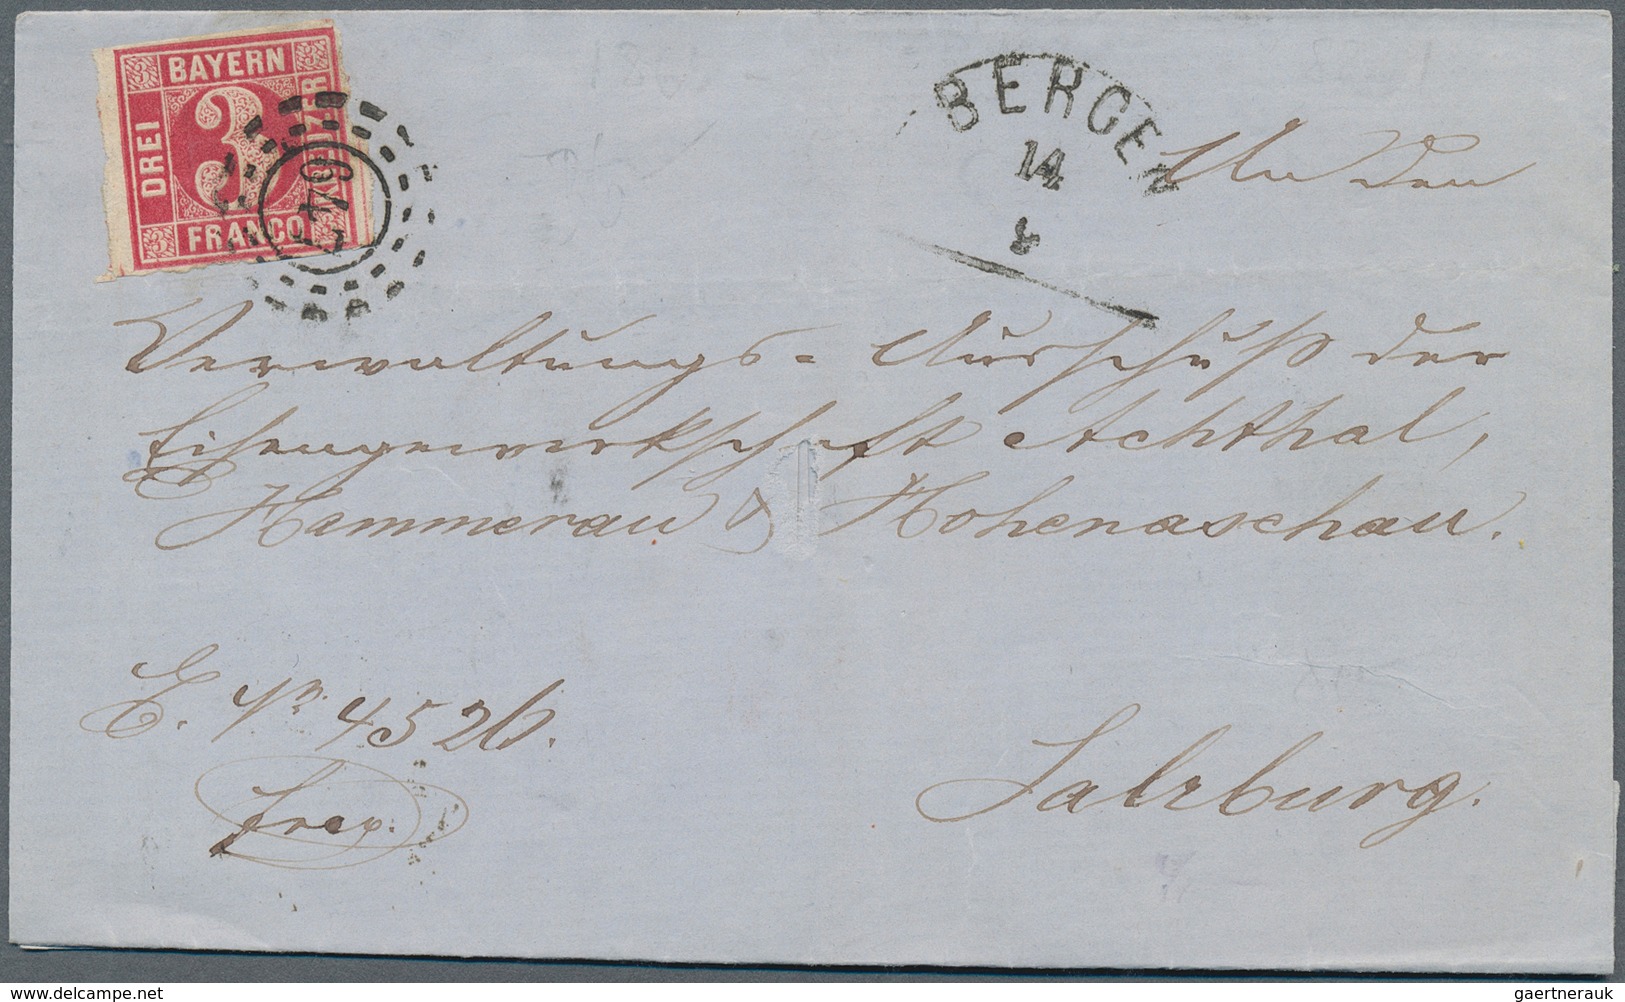 BAYERN
DREI
3
KREUZER
FRANCO
BERGEN
14
8
An den
Verwaltungs= Ausschuß der
Eisengewerkschaft Achthal,
Hammerau & Hohenaschau.
E. Nr. 4526.
Salzburg.
© www.delcampe.net
gaertnerauk